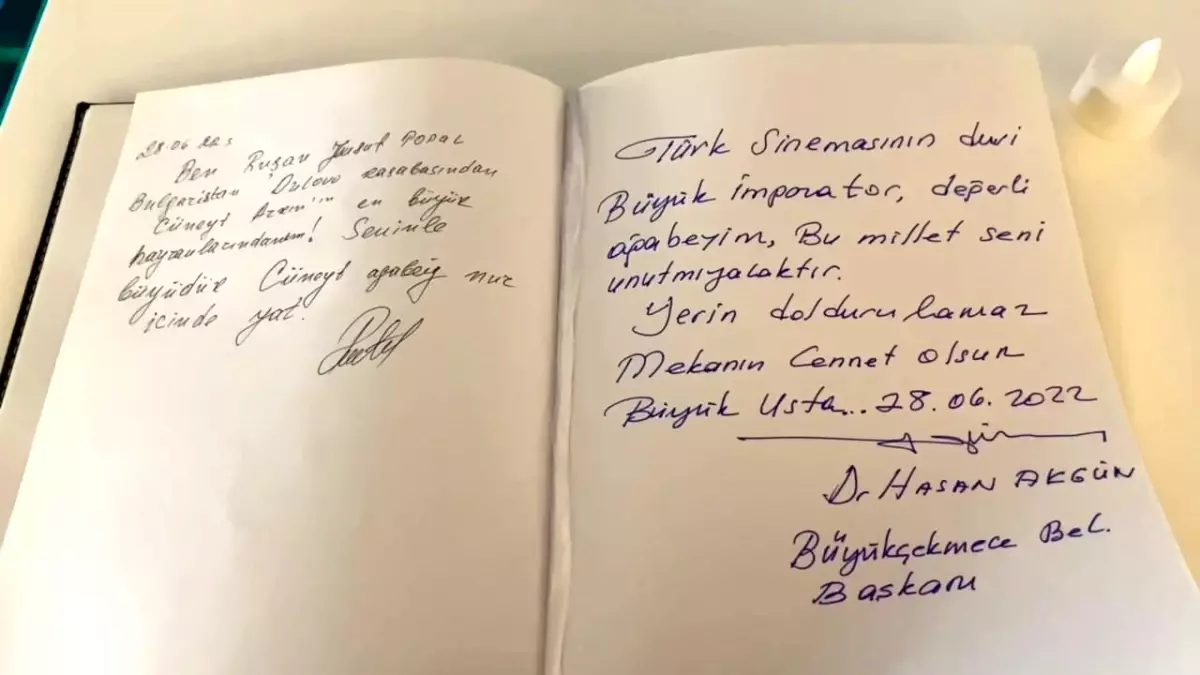 28.06 22s
Ben Ruşan Jusuf
Bulgaristan Dulovo kasabasından
Cüneyt en büyük
hayranlarındanım! Seninle
büyüdük Cüneyt agabeiy nur
icinde yat.
Türk Sinemasının devi
Büyük İmporator, değerli
ağabeyim, Bu millet seni
unutmıyacaktır.
Yerin doldurulamaz
Mekanın Cennet olsun
Büyük Usta.. 28.06.2022
Dr HASAN AKGÜN
Büyükçekmece Bel.
Başkanı